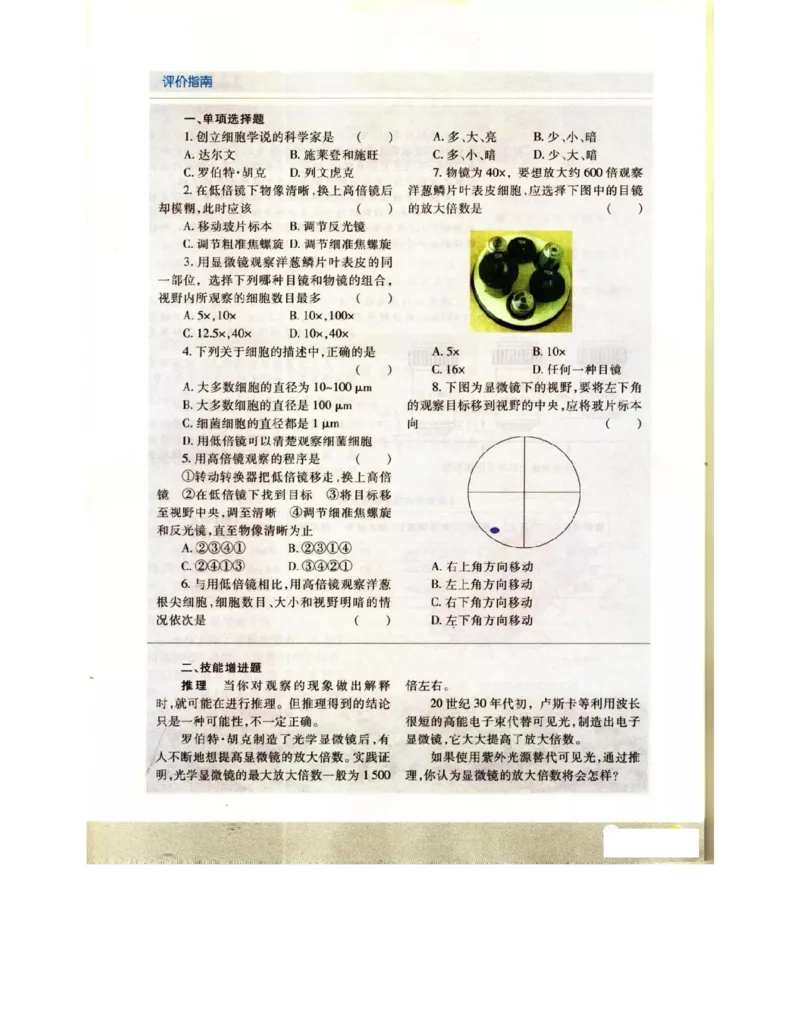 评价指南
一、单项选择题
1.创立细胞学说的科学家是 ( )
A.达尔文 B.施莱登和施旺
C.罗伯特·胡克 D.列文虎克
2.在低倍镜下物像清晰,换上高倍镜后
却模糊,此时应该 ( )
A.移动玻片标本 B.调节反光镜
C.调节粗准焦螺旋 D.调节细准焦螺旋
3.用显微镜观察洋葱鳞片叶表皮的同
一部位，选择下列哪种目镜和物镜的组合，
视野内所观察的细胞数目最多 ( )
A.5×,10× B.10×,100×
C.12.5×,40× D.10×,40×
4.下列关于细胞的描述中,正确的是
( )
A.大多数细胞的直径为10~100 μm
B.大多数细胞的直径是100 μm
C.细菌细胞的直径都是1 μm
D.用低倍镜可以清楚观察细菌细胞
5.用高倍镜观察的程序是 ( )
①转动转换器把低倍镜移走,换上高倍
镜 ②在低倍镜下找到目标 ③将目标移
至视野中央,调至清晰 ④调节细准焦螺旋
和反光镜,直至物像清晰为止
A.②③④① B.②③①④
C.②④①③ D.③④②①
6.与用低倍镜相比,用高倍镜观察洋葱
根尖细胞,细胞数目、大小和视野明暗的情
况依次是 ( )
A.多、大、亮 B.少、小、暗
C.多、小、暗 D.少、大、暗
7.物镜为40×，要想放大约600倍观察
洋葱鳞片叶表皮细胞,应选择下图中的目镜
的放大倍数是 ( )
A.5× B.10×
C.16× D.任何一种目镜
8.下图为显微镜下的视野,要将左下角
的观察目标移到视野的中央,应将玻片标本
向 ( )
A.右上角方向移动
B.左上角方向移动
C.右下角方向移动
D.左下角方向移动
二、技能增进题
推理 当你对观察的现象做出解释
时,就可能在进行推理。但推理得到的结论
只是一种可能性,不一定正确。
罗伯特·胡克制造了光学显微镜后,有
人不断地想提高显微镜的放大倍数。实践证
明,光学显微镜的最大放大倍数一般为1500
倍左右。
20世纪30年代初，卢斯卡等利用波长
很短的高能电子束代替可见光,制造出电子
显微镜,它大大提高了放大倍数。
如果使用紫外光源替代可见光,通过推
理,你认为显微镜的放大倍数将会怎样?